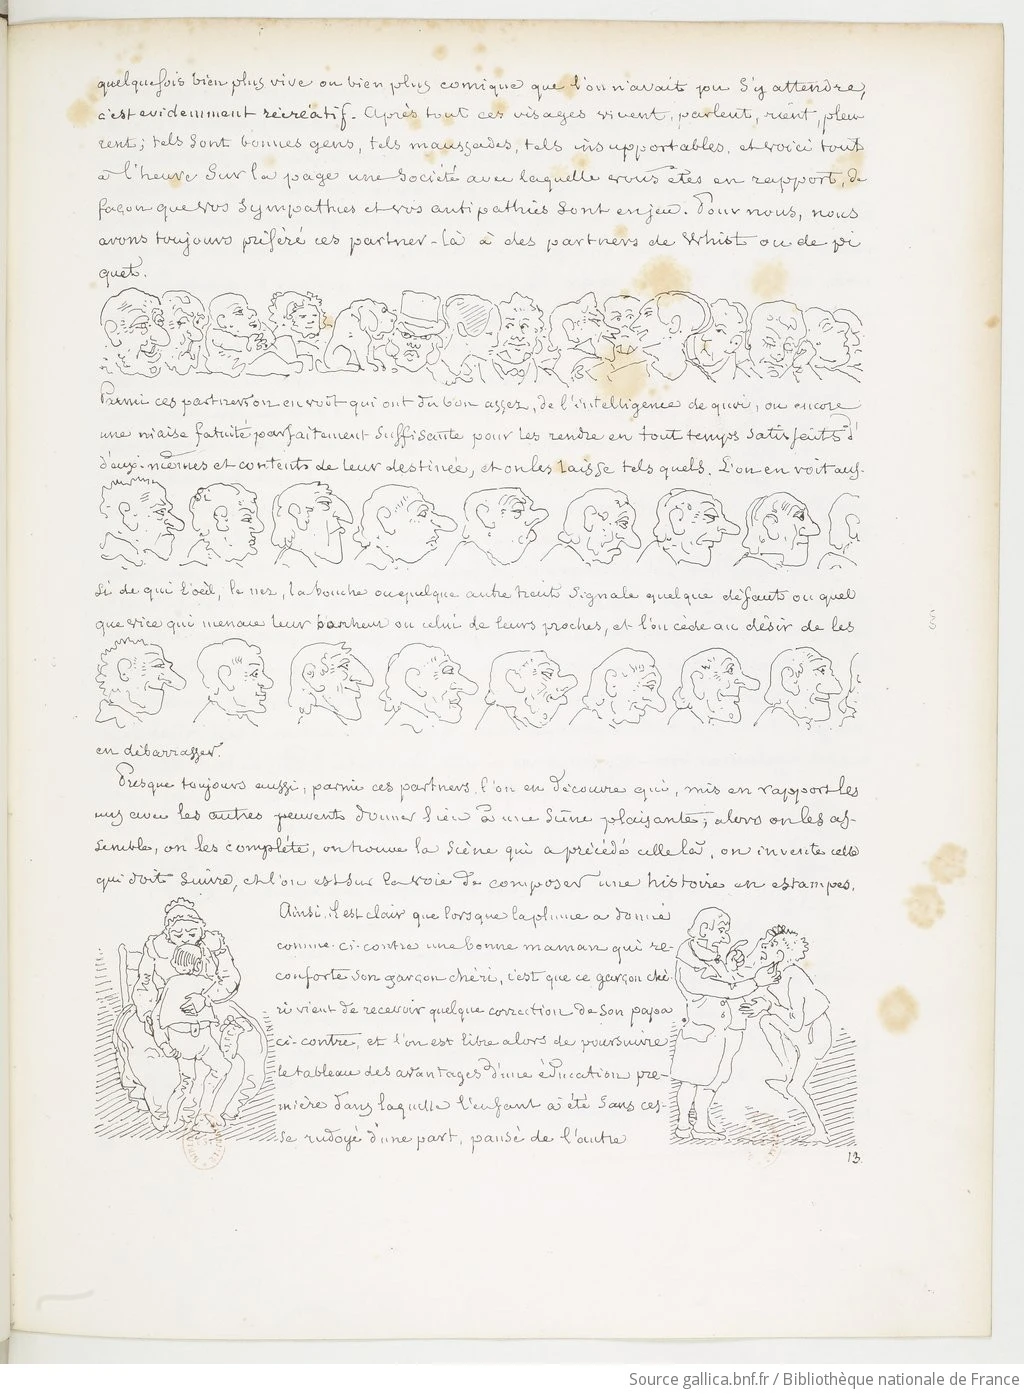 quelquefois bien plus vive ou bien plus comique que l'on n'avait pu s'y attendre,
c'est evidemment récréatif. Après tout ces visages vivent, parlent, rient, pleu-
rent; tels sont bonnes gens, tels maussades, tels insupportables, et voici tout
à l'heure sur la page une société avec laquelle vous êtes en rapport, de
façon que vos sympathies et vos antipathies sont en jeu. Pour nous, nous
avons toujours préféré ces partner-là à des partners de Whist ou de pi
quet.
Parmi ces partners on en voit qui ont du bon assez, de l'intelligence de quoi, ou encore
une niaise fatuité parfaitement suffisante pour les rendre en tout temps satisfaits d'
d'eux-mêmes et contents de leur destinée, et on les laisse tels quels. L'on en voit aus-
si de qui l'œil, le nez, la bouche ou quelque autre trait signale quelque défaut ou quel
que vice qui menace leur bonheur ou celui de leurs proches, et l'on cède au désir de les
en débarrasser.
Presque toujours aussi, parmi ces partners, l'on en découvre qui, mis en rapport les
uns avec les autres peuvent donner lieu à une scène plaisante; alors on les as-
semble, on les complète, on trouve la scène qui a précédé celle là, on invente celle
qui doit suivre, et l'on est sur la voie de composer une histoire en estampes.
Ainsi il est clair que lorsque la plume a donné
comme ci-contre une bonne maman qui ré-
conforte son garçon chéri, c'est que ce garçon ché
ri vient de recevoir quelque correction de son papa
ci-contre, et l'on est libre alors de poursuivre
le tableau des avantages d'une éducation pre-
mière dans laquelle l'enfant a été sans ces-
se rudoyé d'une part, pansé de l'autre
13.
Source gallica.bnf.fr / Bibliothèque nationale de France